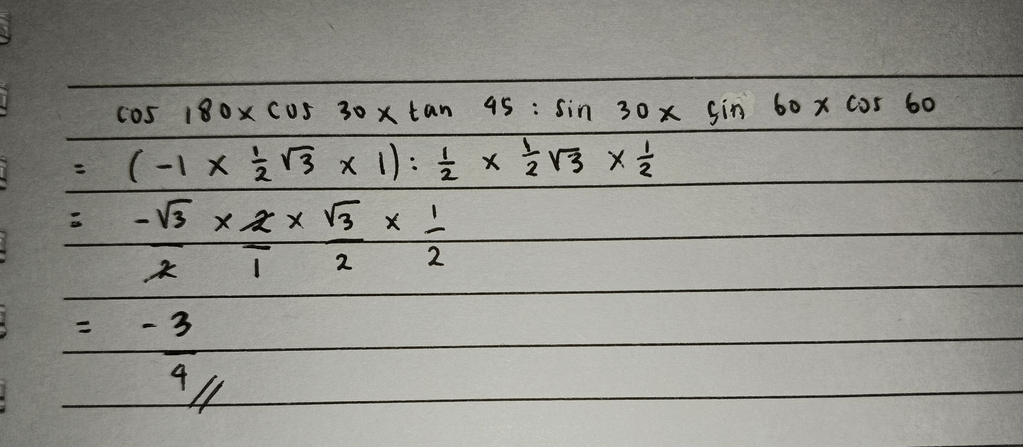 cos 180 x cos 30 x tan 45 : sin 30 x sin 60 x cos 60
= (-1 x 1/2 √3 x 1) : 1/2 x 1/2 √3 x 1/2
= -√3/2 x 2/1 x √3/2 x 1/2
= -3/4 //